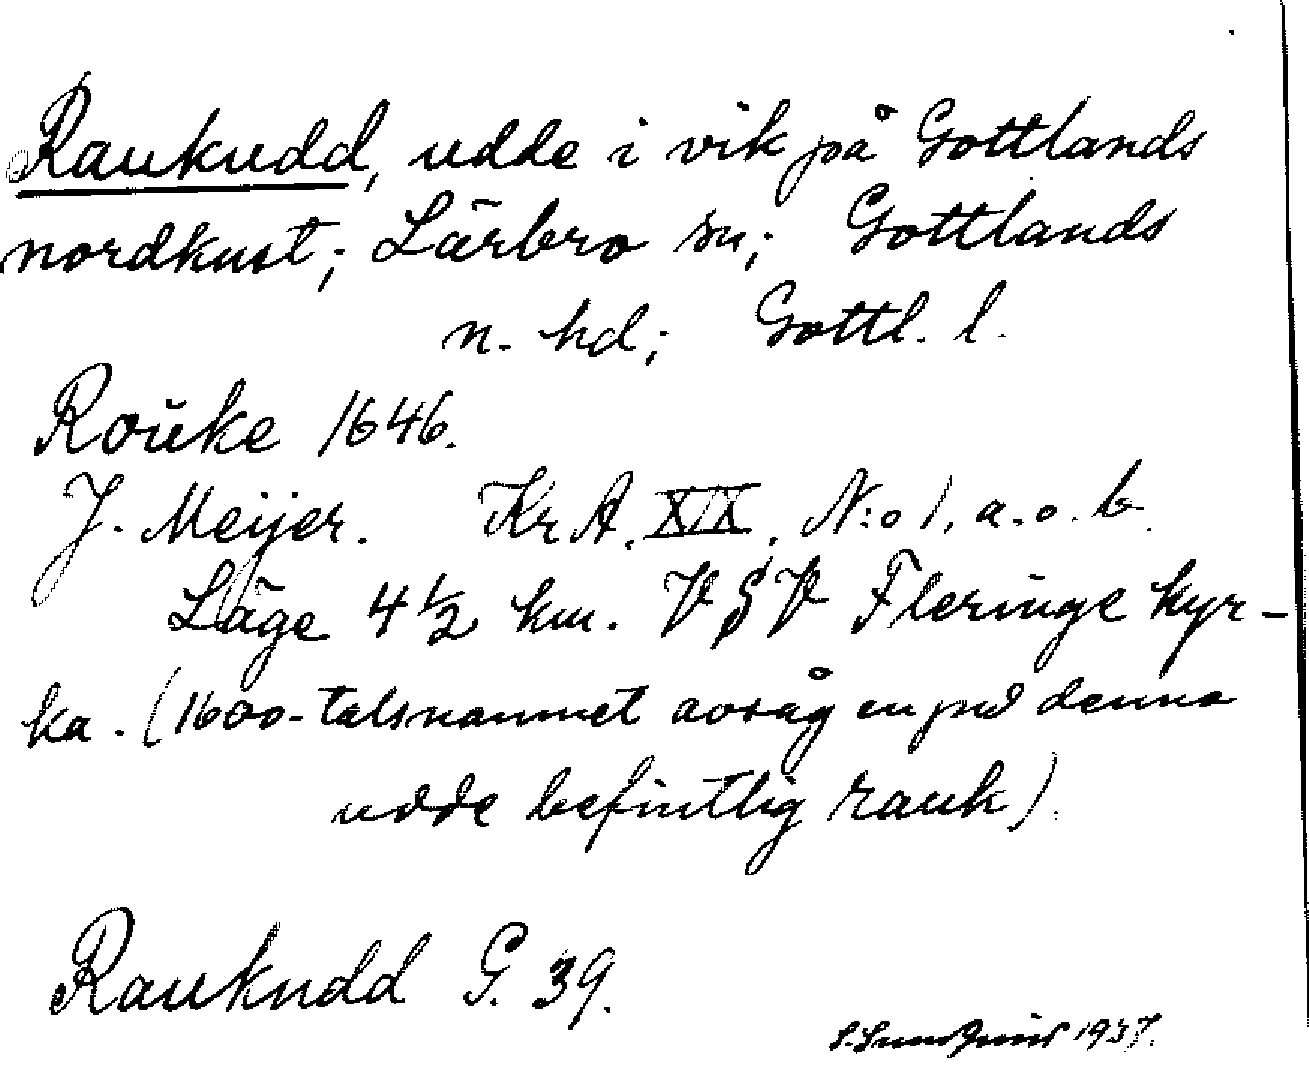 Raukudd, udde i vik på Gottlands
nordkust; Lärbro sn; Gottlands
n. hd; Gottl. l.
Roŭke 1646.
J. Meijer. Kr A. XIX. N:o 1, a. o. b.
Läge 4 1/2 km. V S V Fleringe kyr-
ka. (1600-talsnamnet avsåg en på denna
udde befintlig rauk).
Raukudd G. 39.
1937.